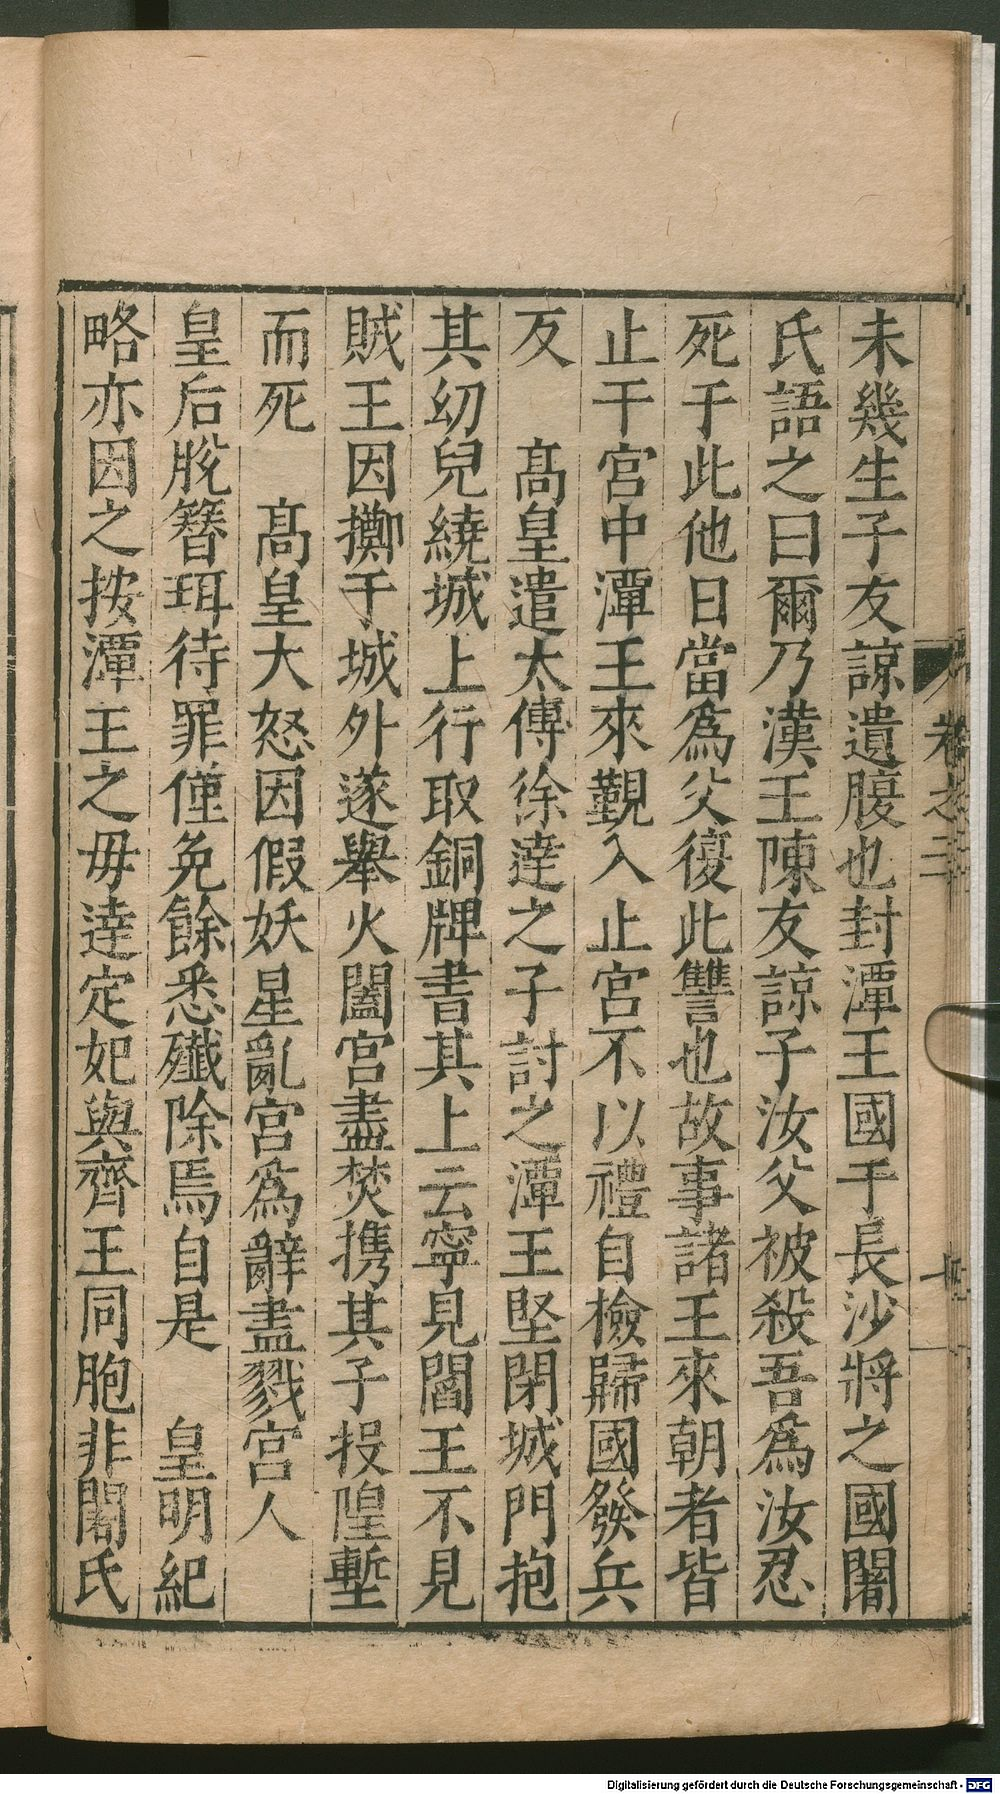 未幾生子友諒遺腹也封潭王國于長沙將之國闍
氏語之曰爾乃漢王陳友諒子汝父被殺吾爲汝忍
死于此他日當爲父復此讐也故事諸王來朝者皆
止于宮中潭王來覲入止宮不以禮自檢歸國發兵
反　髙皇遣太傅徐達之子討之潭王堅閉城門抱
其幼兒繞城上行取銅牌書其上云寧見閻王不見
賊王因擲于城外遂舉火闔宮盡焚携其子投隍塹
而死　髙皇大怒因假妖星亂宮爲辭盡戮宮人
皇后脫簪珥待罪僅免餘悉殱除焉自是　皇明紀
略亦因之按潭王之毋達定妃與齊王同胞非闍氏
卷之二
Digitalisierung gefördert durch die Deutsche Forschungsgemeinschaft - DFG